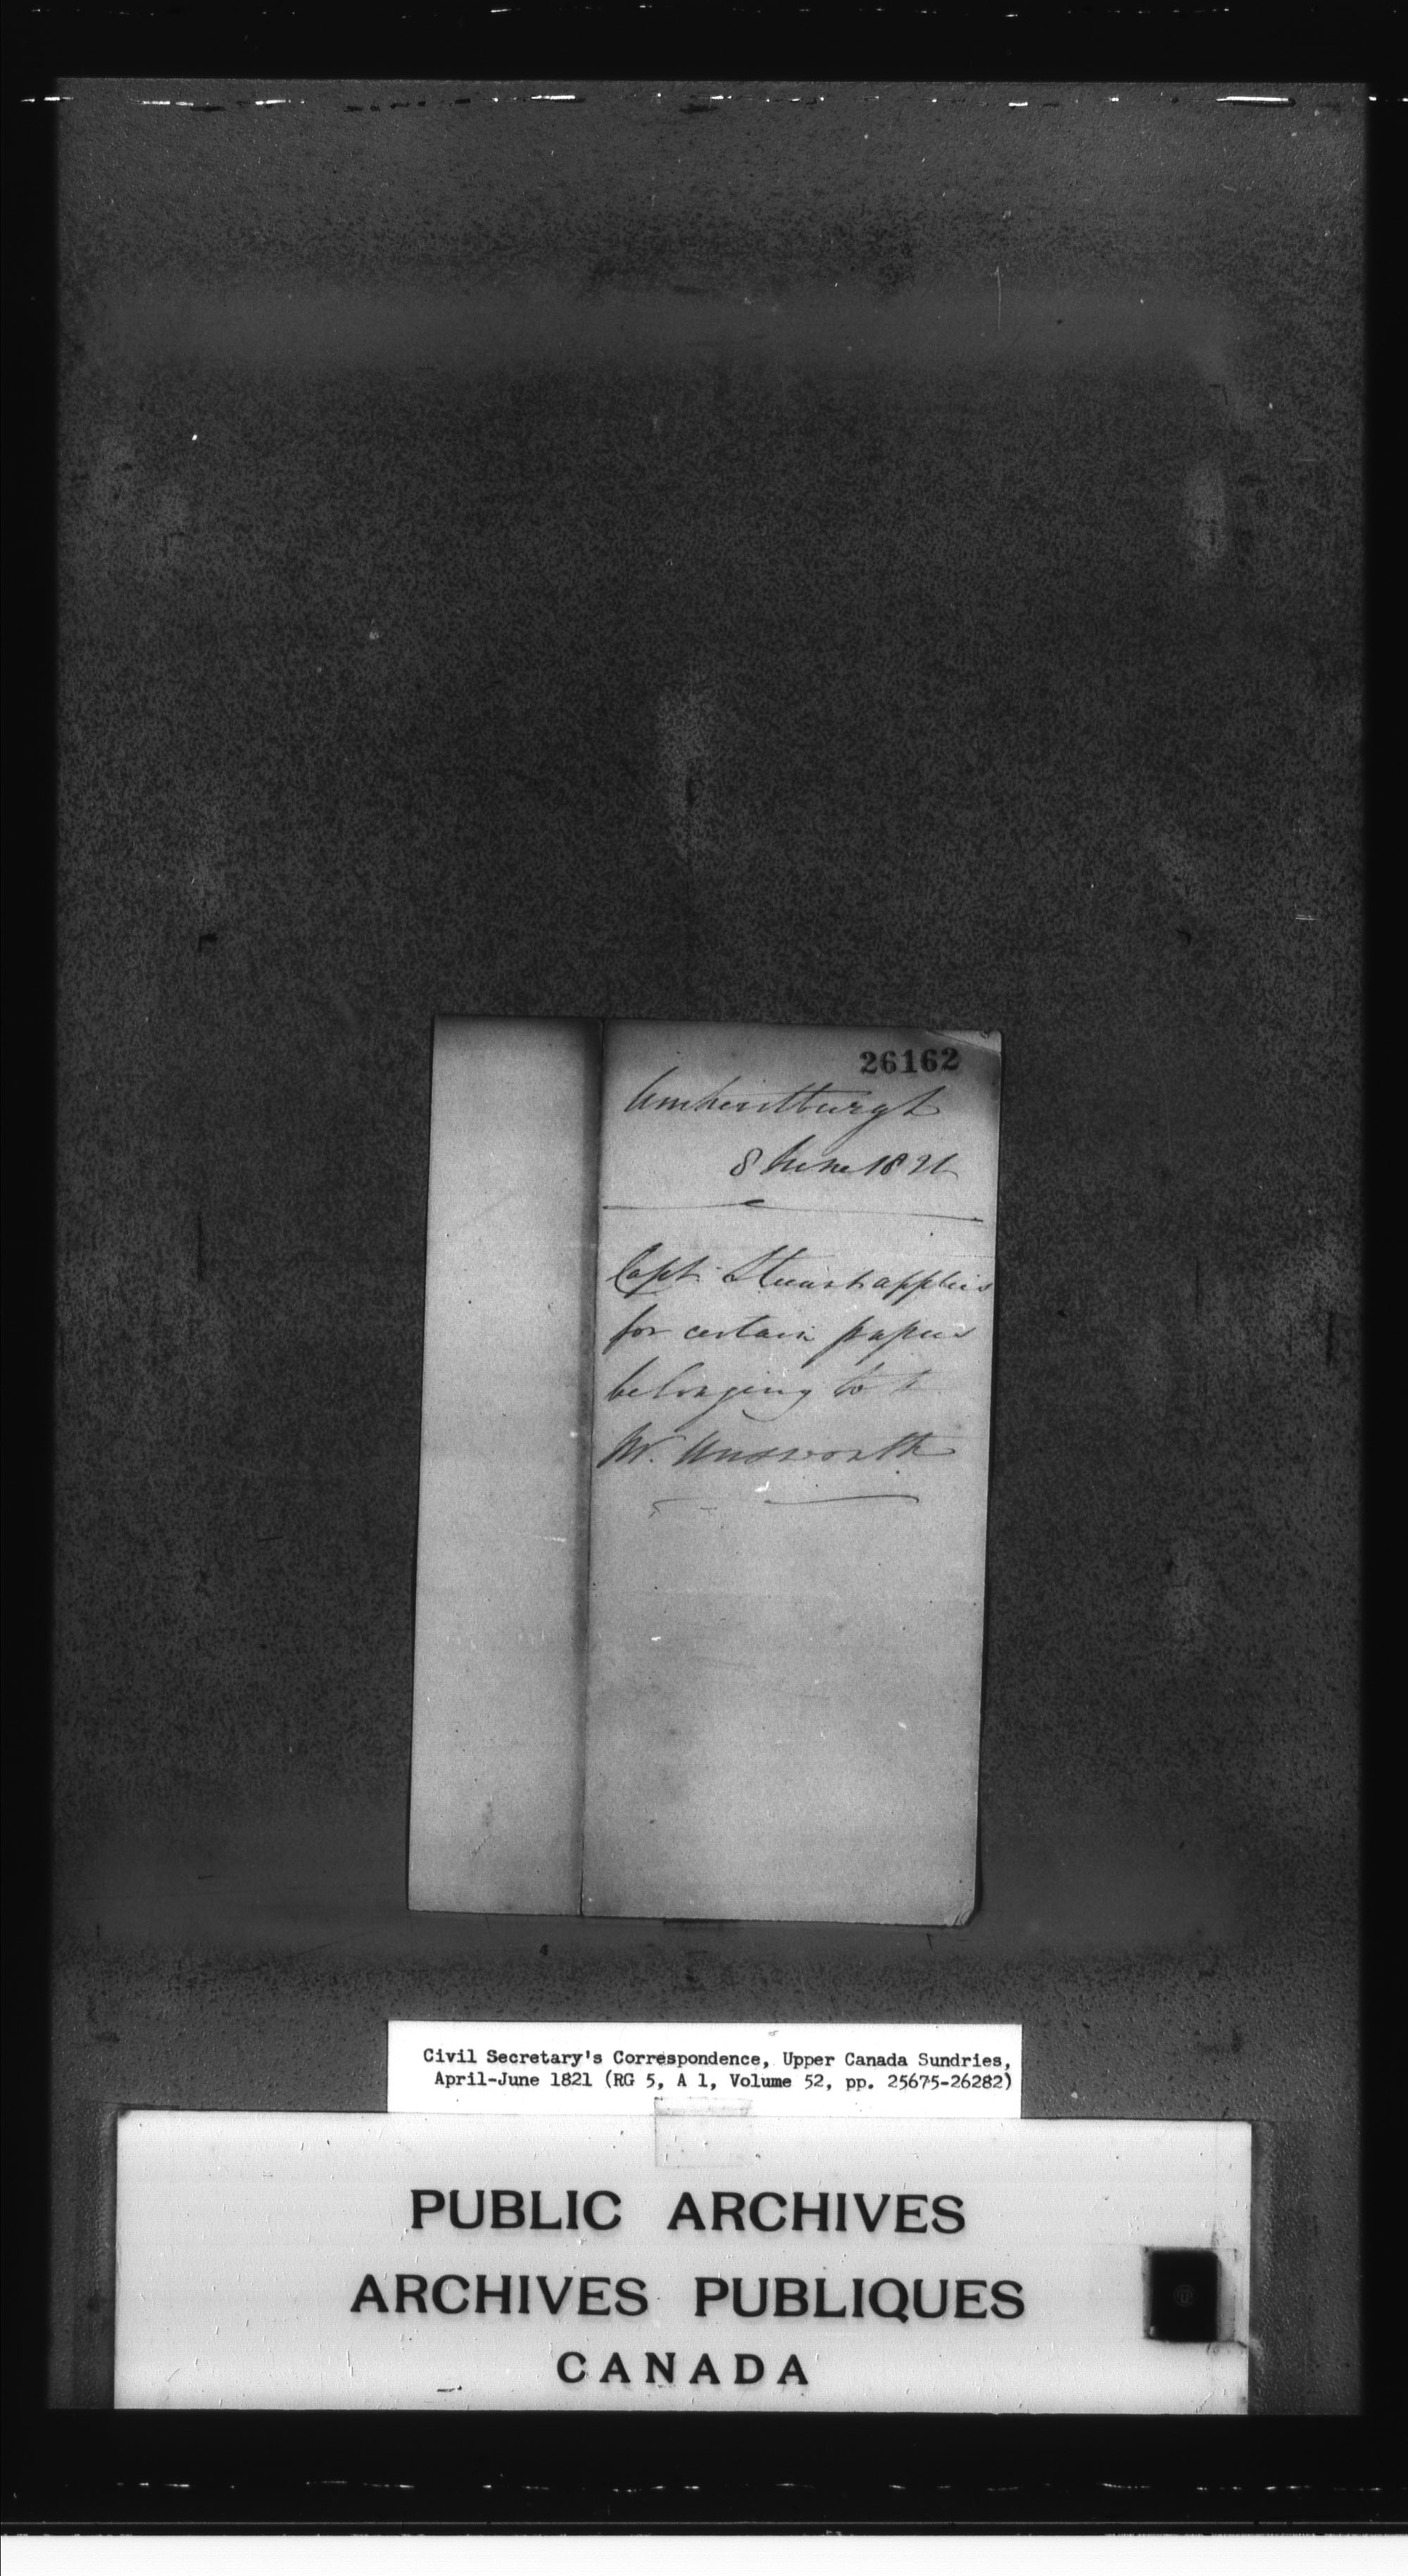 26162
Amherstburgh
8 June 1821
Capt. Stewart applies
for certain papers
belonging to
W. Unsworth
Civil Secretary's Correspondence, Upper Canada Sundries,
April-June 1821 (RG 5, A 1, Volume 52, pp. 25675-26282)
PUBLIC ARCHIVES
ARCHIVES PUBLIQUES
CANADA